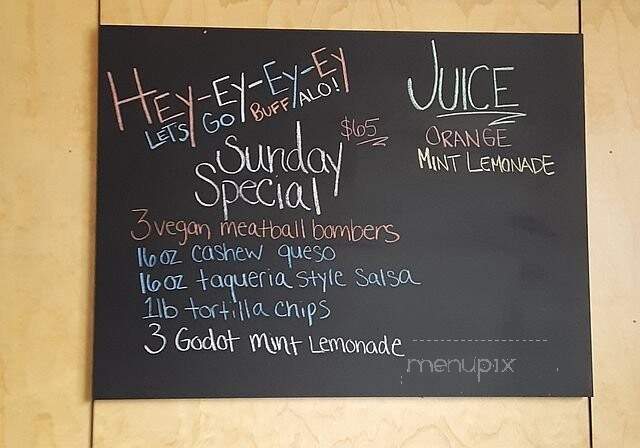 HEY-EY-EY-EY
LETS GO BUFFALO!
Sunday $65
Special
3 vegan meatball bombers
16oz cashew queso
16oz taqueria style salsa
1lb tortilla chips
3 Godot mint Lemonade
JUICE
ORANGE
MINT LEMONADE
menupix